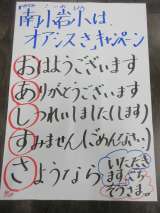 南小岩小は、
オアシスさ」キャンペーン
おはようございます
ありがとうございます
しつれいしました(します)
すみません(ごめんなさい)
さようなら
いただき
ます